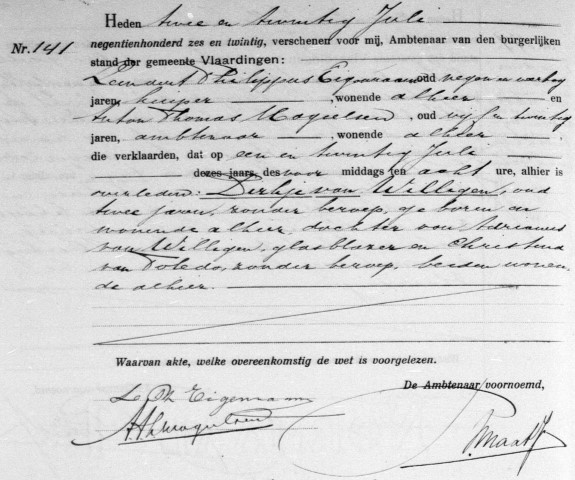 Heden twee en twintig Juli
Nr. 141
negentienhonderd zes en twintig, verschenen voor mij, Ambtenaar van den burgerlijken
stand der gemeente Vlaardingen:
Leendert Philippus Eigenraam oud negen en veertig
jaren, kuiper, wonende alhier en
Anton Thomas Magielsen, oud vijf en twintig
jaren, ambtenaar, wonende alhier
die verklaarden, dat op een en twintig Juli
dezes jaars des voor middags ten acht ure, alhier is
overleden: Dirkje van Willigen, oud
twee jaren, zonder beroep, geboren en
wonende alhier, dochter van Adrianus
van Willigen, glasblazer en Christina
van Toledo, zonder beroep, beiden wonen
de alhier.
Waarvan akte, welke overeenkomstig de wet is voorgelezen.
De Ambtenaar voornoemd,
L Ph Eigenraam